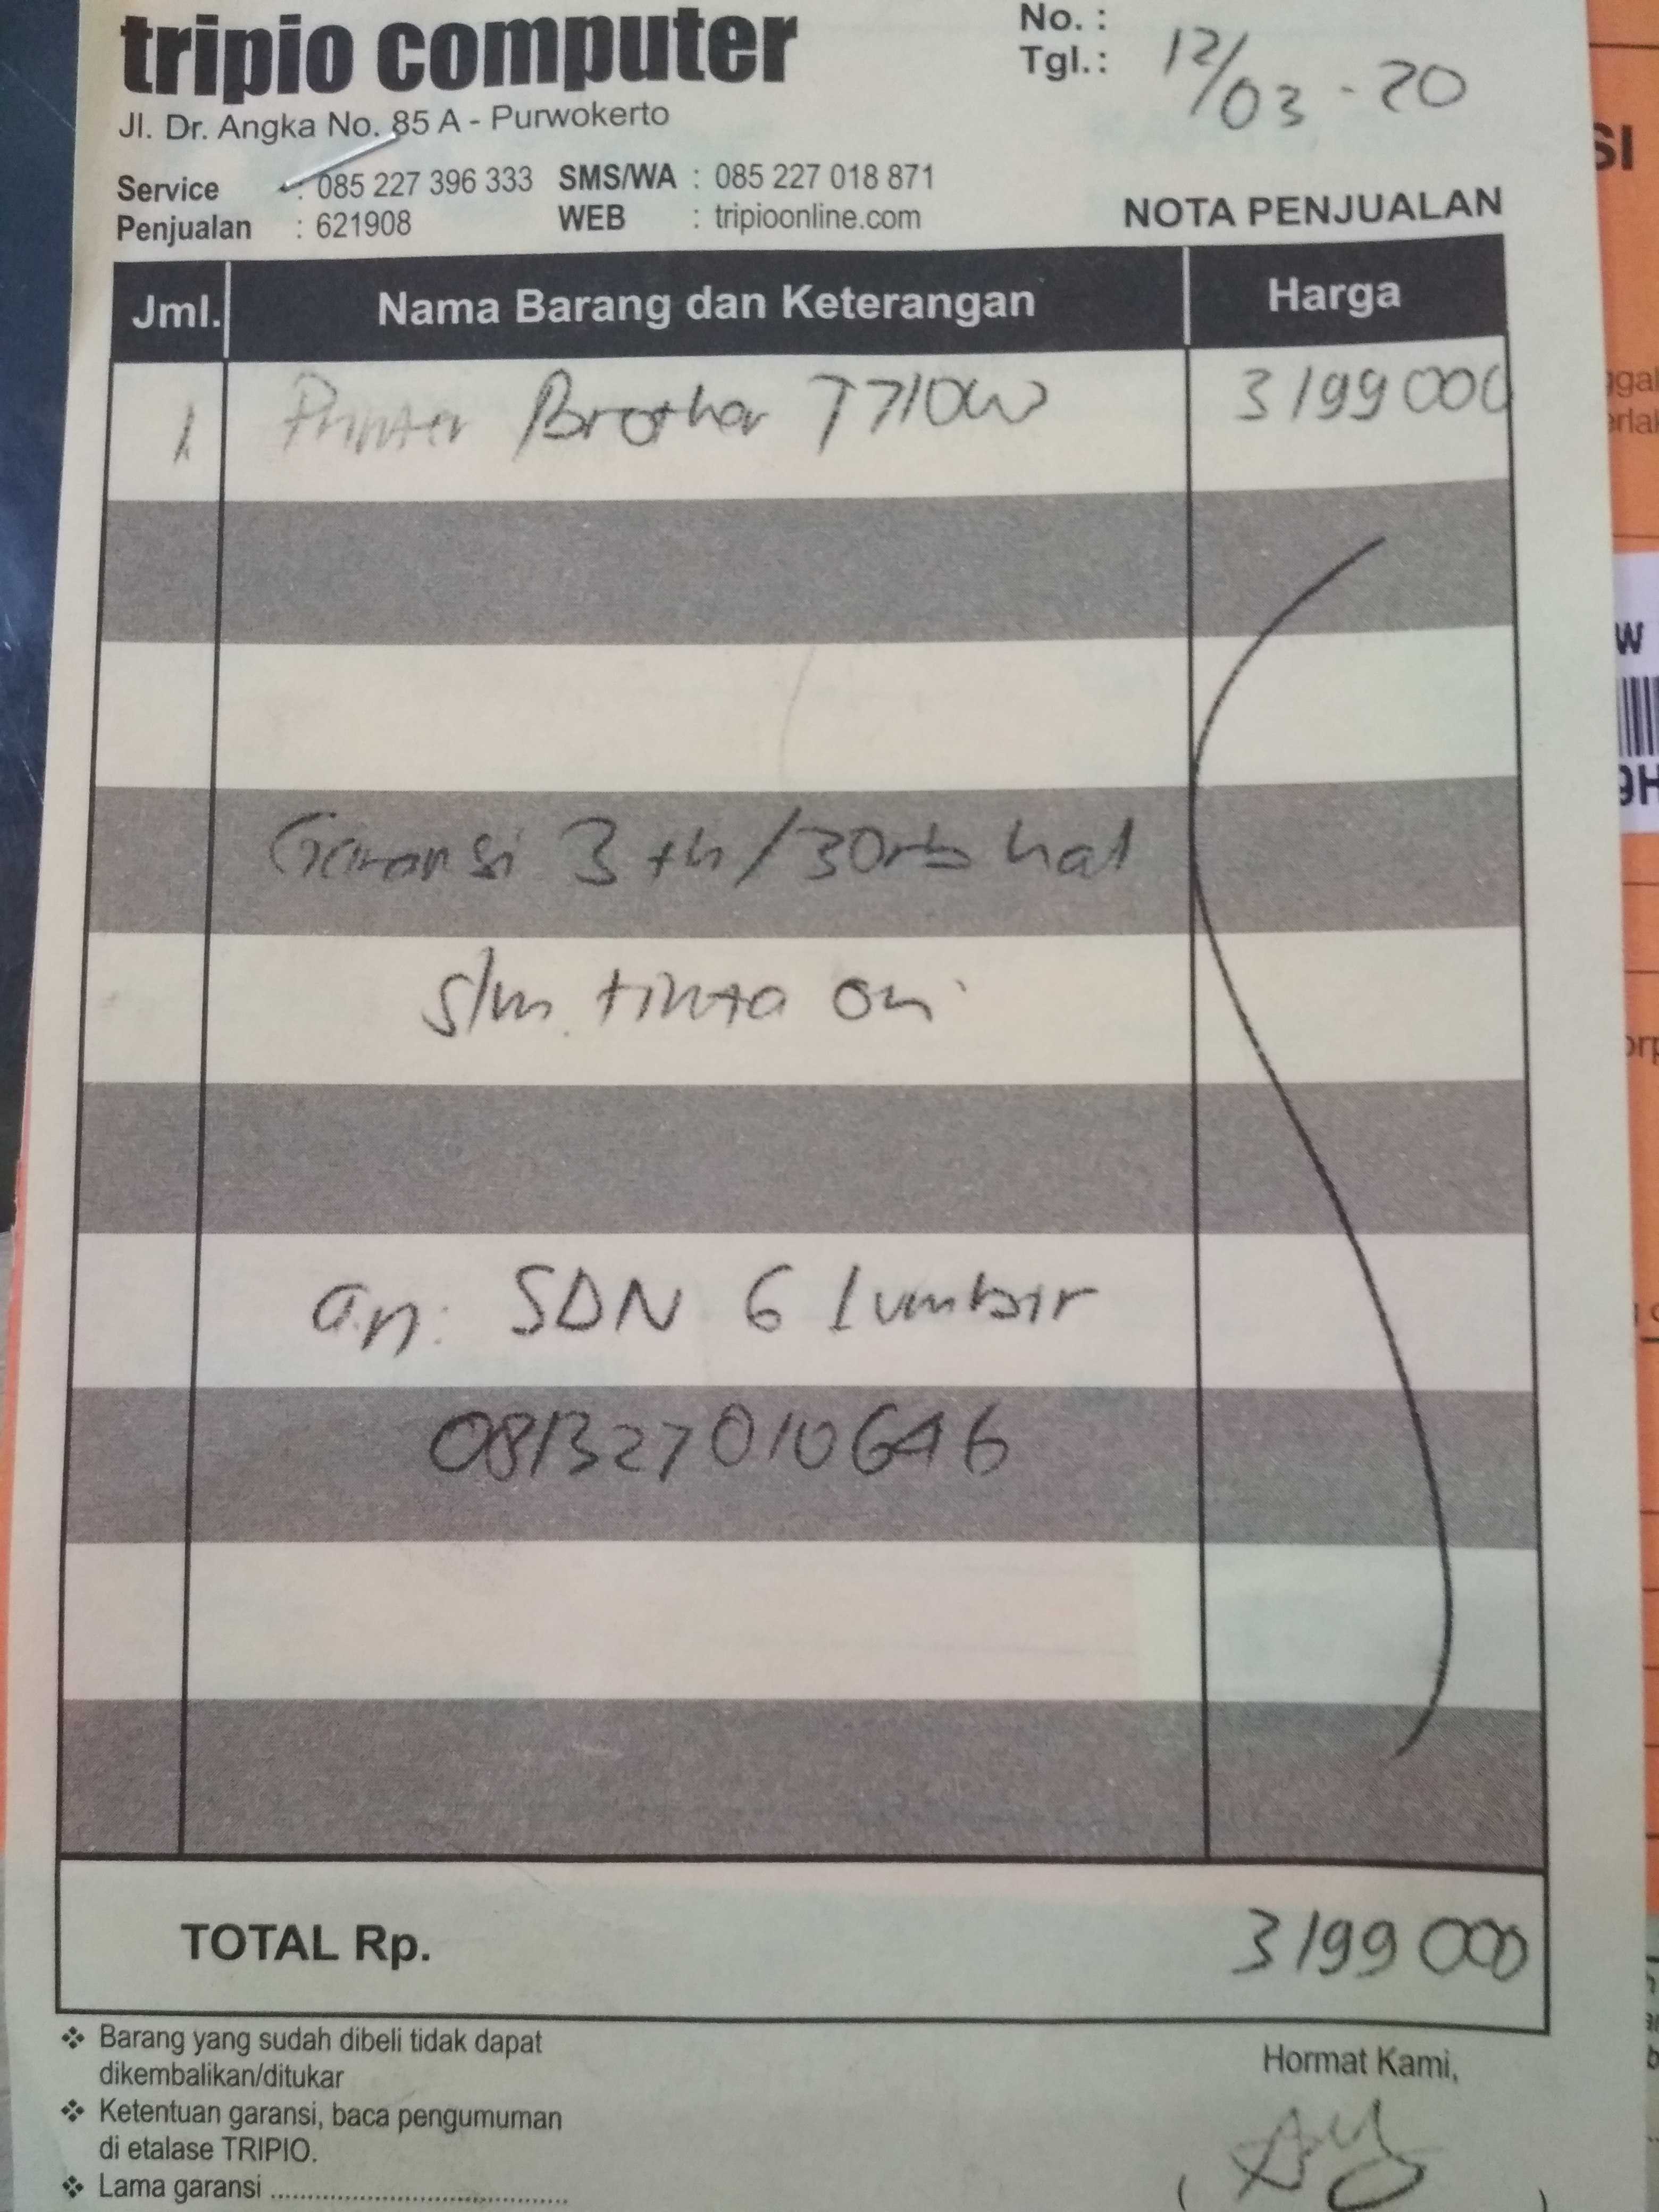 tripio computer
No. :
Tgl.: 12/03-20
Jl. Dr. Angka No. 85 A - Purwokerto
Service : 085 227 396 333 SMS/WA : 085 227 018 871
Penjualan : 621908 WEB : tripioonline.com
NOTA PENJUALAN
Jml. Nama Barang dan Keterangan Harga
1 Printer Brother T710W 3199000
Garansi 3 th/30rb hal
slm tinta ori
an: SDN 6 lumbir
081327010646
TOTAL Rp. 3199000
❖ Barang yang sudah dibeli tidak dapat
dikembalikan/ditukar
❖ Ketentuan garansi, baca pengumuman
di etalase TRIPIO.
❖ Lama garansi ..........................................
Hormat Kami,
SI
W
9H